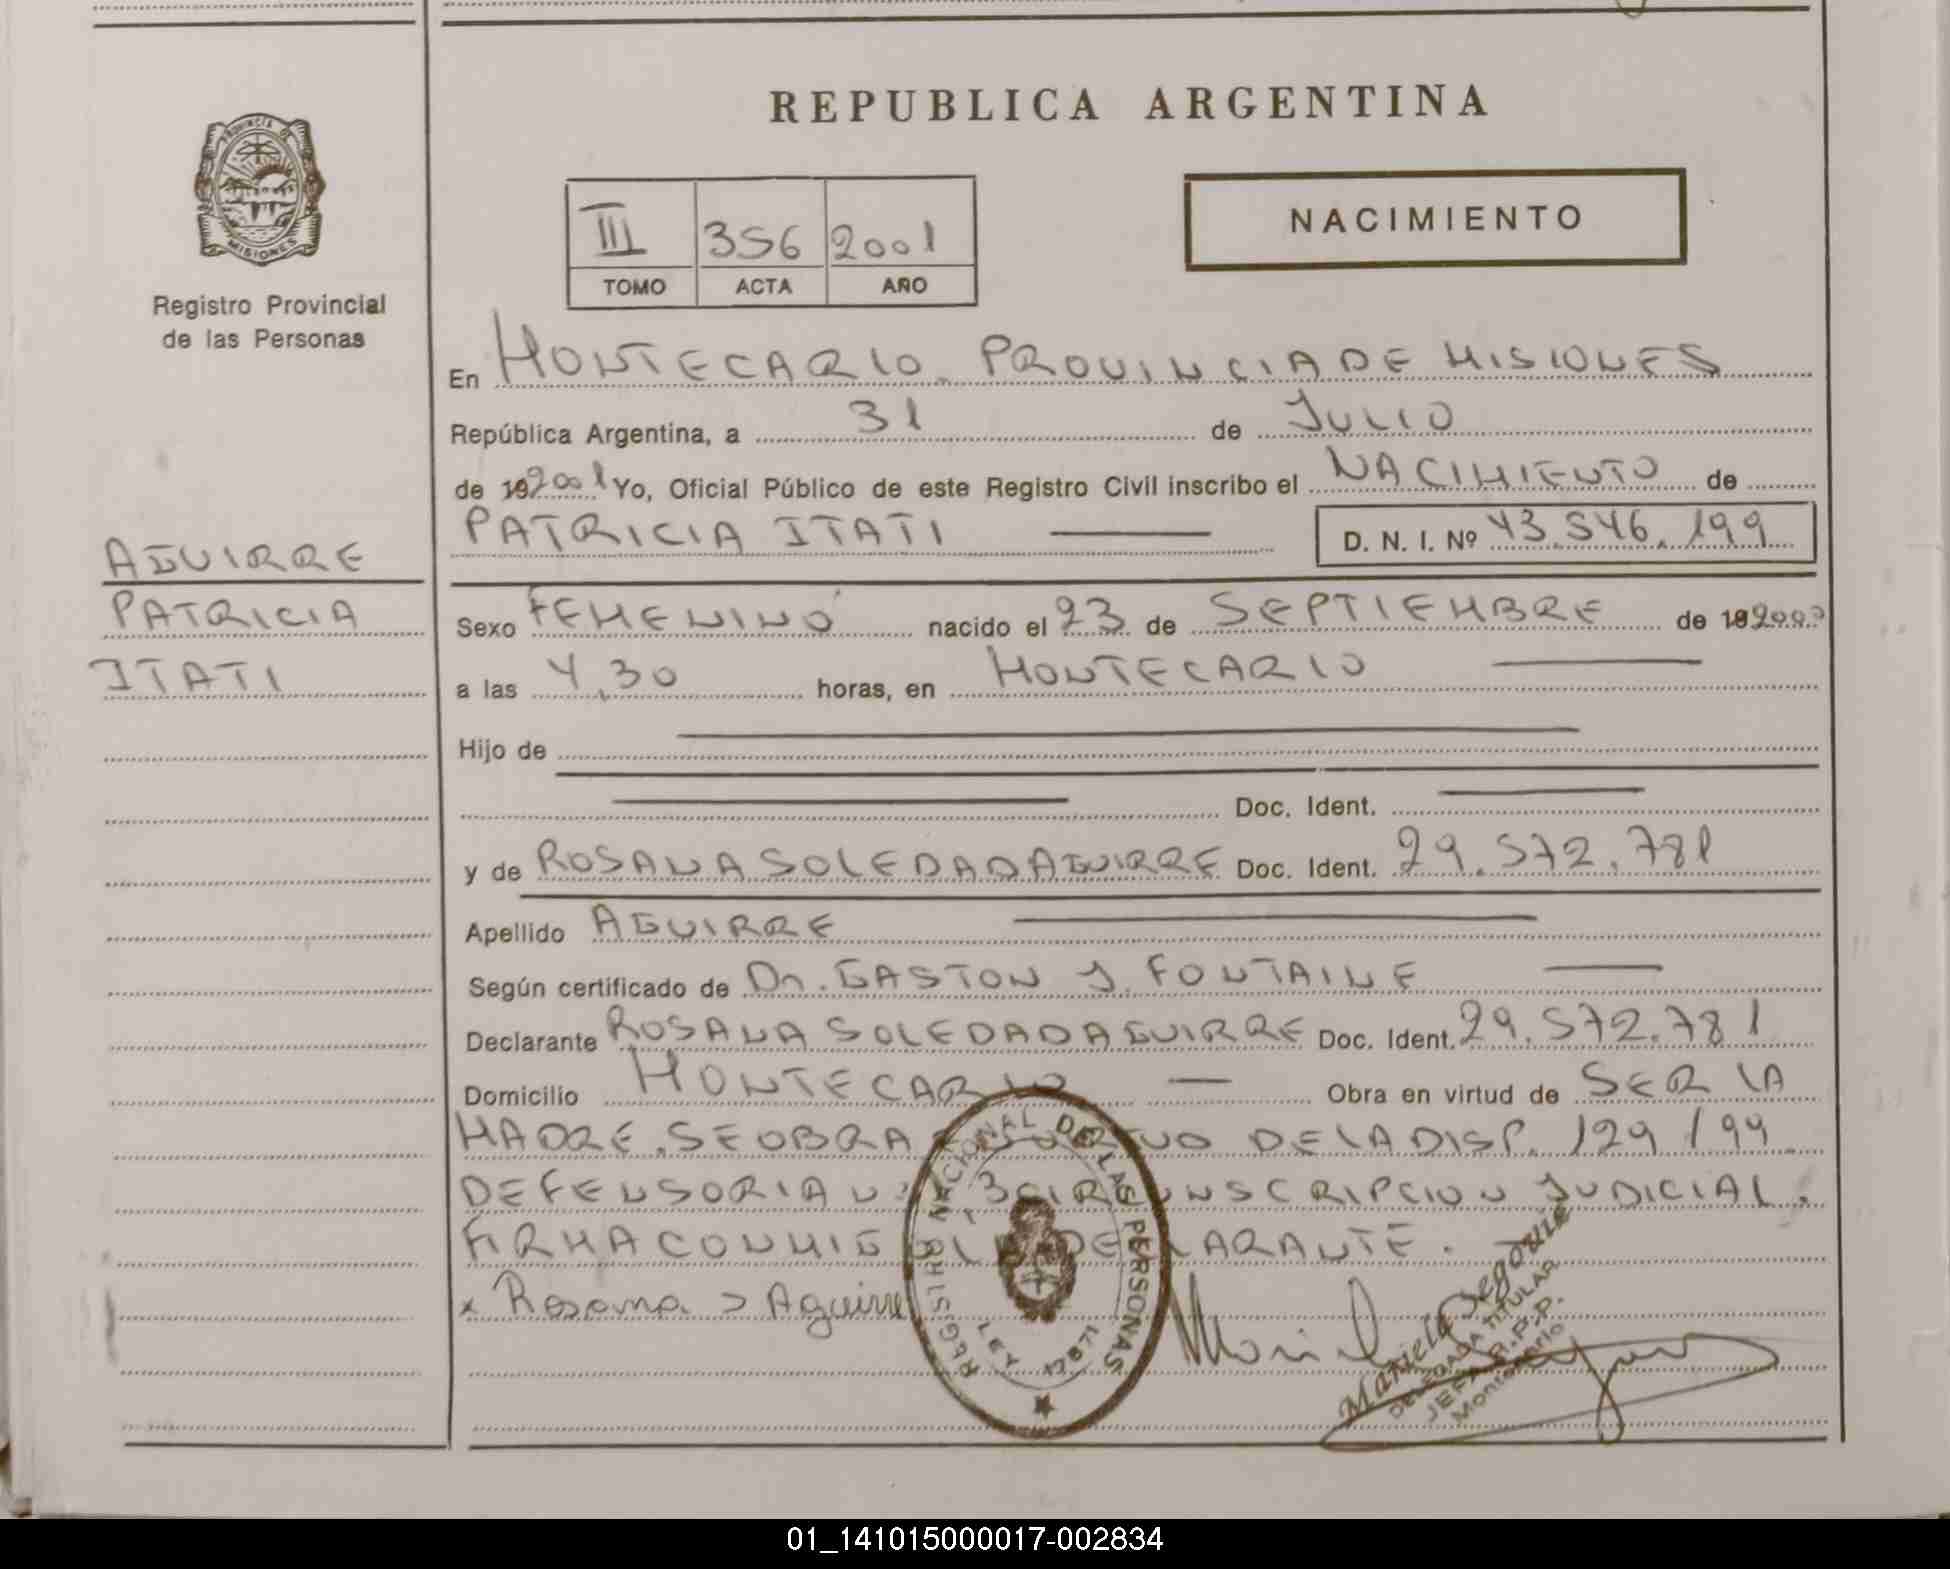 REPUBLICA ARGENTINA
PROVINCIA DE
MISIONES
Registro Provincial
de las Personas
III 356 2001
TOMO ACTA AÑO
NACIMIENTO
En MONTECARLO. PROVINCIA DE MISIONES
República Argentina, a 31 de JULIO
de 192001 Yo, Oficial Público de este Registro Civil inscribo el NACIMIENTO de
PATRICIA ITATI D. N. I. Nº 43.546.199
AGUIRRE
PATRICIA
ITATI
Sexo FEMENINO nacido el 23 de SEPTIEMBRE de 192000
a las 4,30 horas, en MONTECARLO
Hijo de
Doc. Ident.
y de ROSANA SOLEDAD AGUIRRE Doc. Ident. 29.572.781
Apellido AGUIRRE
Según certificado de Dr. GASTON J. FONTAINE
Declarante ROSANA SOLEDAD AGUIRRE Doc. Ident. 29.572.781
Domicilio MONTECARLO Obra en virtud de SER LA
MADRE. SE OBRA DE LA DISP. 129/99
DEFENSORIA 3 CIRCUNSCRIPCION JUDICIAL.
FIRMA CONMIGO LA DECLARANTE.
x Rosana S Aguirre
REGISTRO NACIONAL DE LAS PERSONAS
LEY 17671
Mariela Segovia
DELEGADA TITULAR
JEFA R.P.P.
Montecarlo
01_141015000017-002834